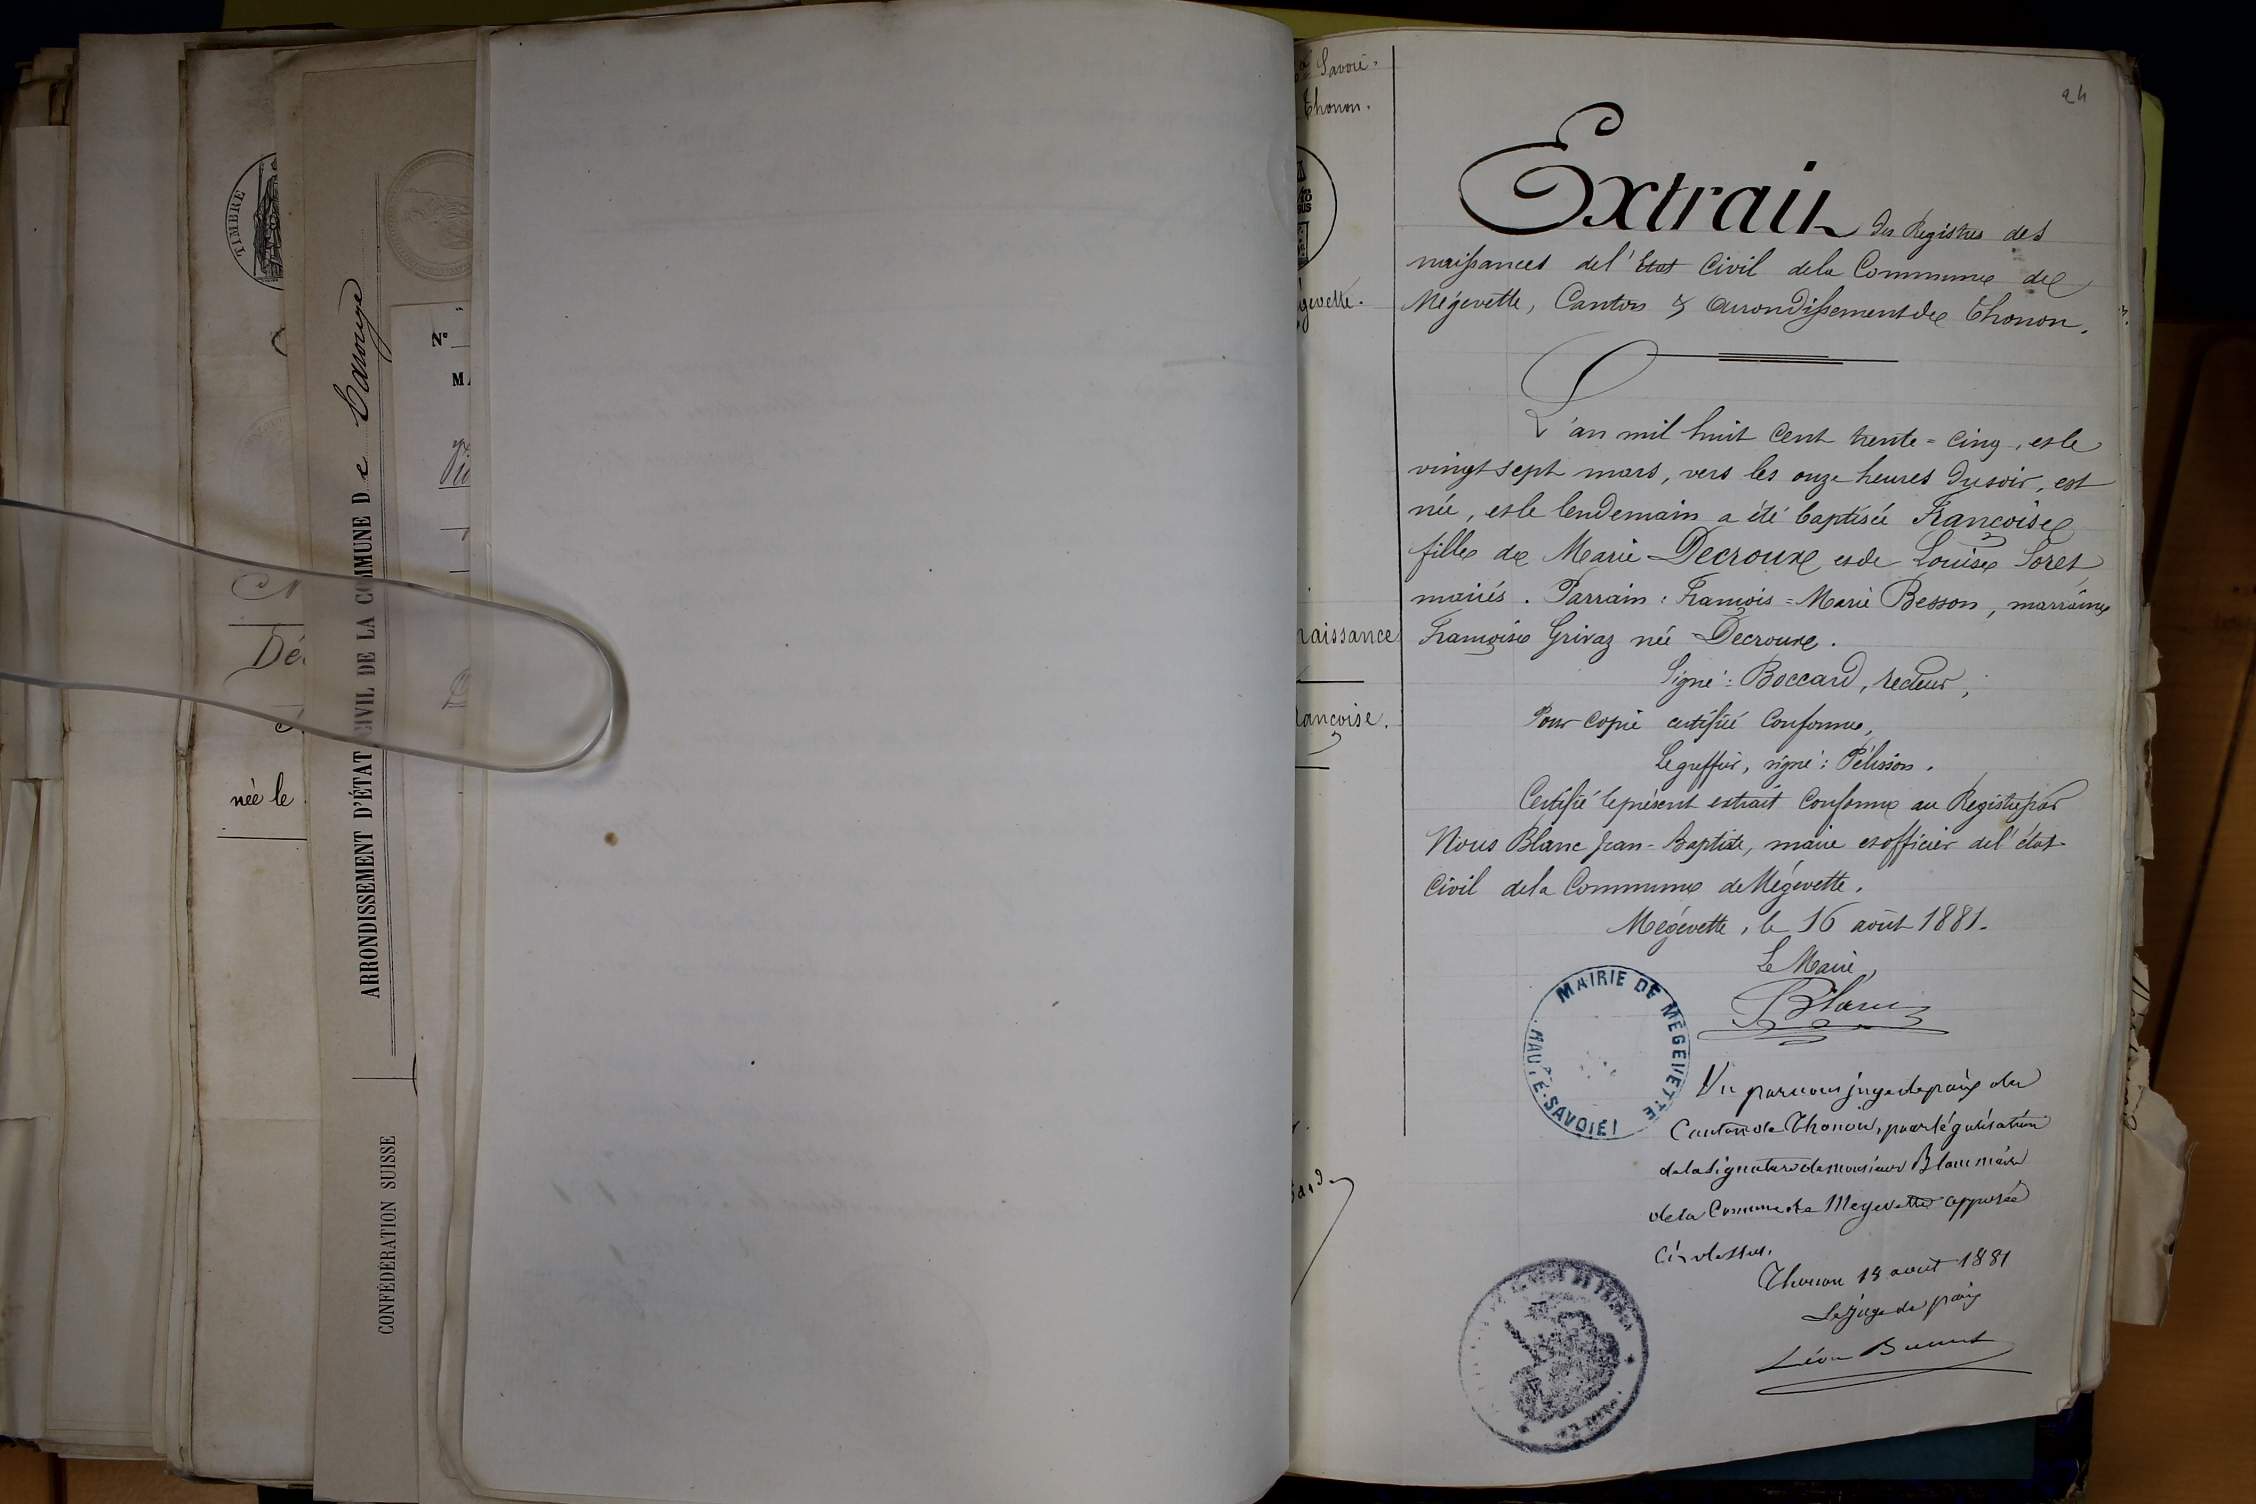 TIMBRE
ARRONDISSEMENT D'ÉTAT CIVIL DE LA COMMUNE De Carouge
CONFÉDÉRATION SUISSE
N°
née le
Savoie.
Thonon.
naissance
24
Extrait des Registres des
naissances del'Etat Civil dela Commune de
Mégevette, Canton & arrondissement de Thonon.
L'an mil huit cent trente=cinq, et le
vingt sept mars, vers les onze heures du soir, est
née, et le lendemain a été baptisée Françoise
fille de Marie Decroux et de Louise Soret
mariés. Parrain: François=Marie Besson, marraine
Françoise Grivaz née Decroux.
Signé: Boccard, recteur,
Pour copie certifiée conforme,
Le greffier, signé: Pélisson.
Certifié le présent extrait conforme au Registre par
Nous Blanc Jean-Baptiste, maire et officier del'état
Civil dela Commune de Mégevette.
Mégevette, le 16 août 1881.
Le Maire,
Blanc
MAIRIE DE MÉGEVETTE
HAUTE-SAVOIE
Vu par nous juge de paix du
Canton de Thonon, pour légalisation
de la signature de monsieur Blanc maire
de la Commune de Megevette apposée
ci-dessus.
Thonon 18 août 1881
Le Juge de paix
Léon